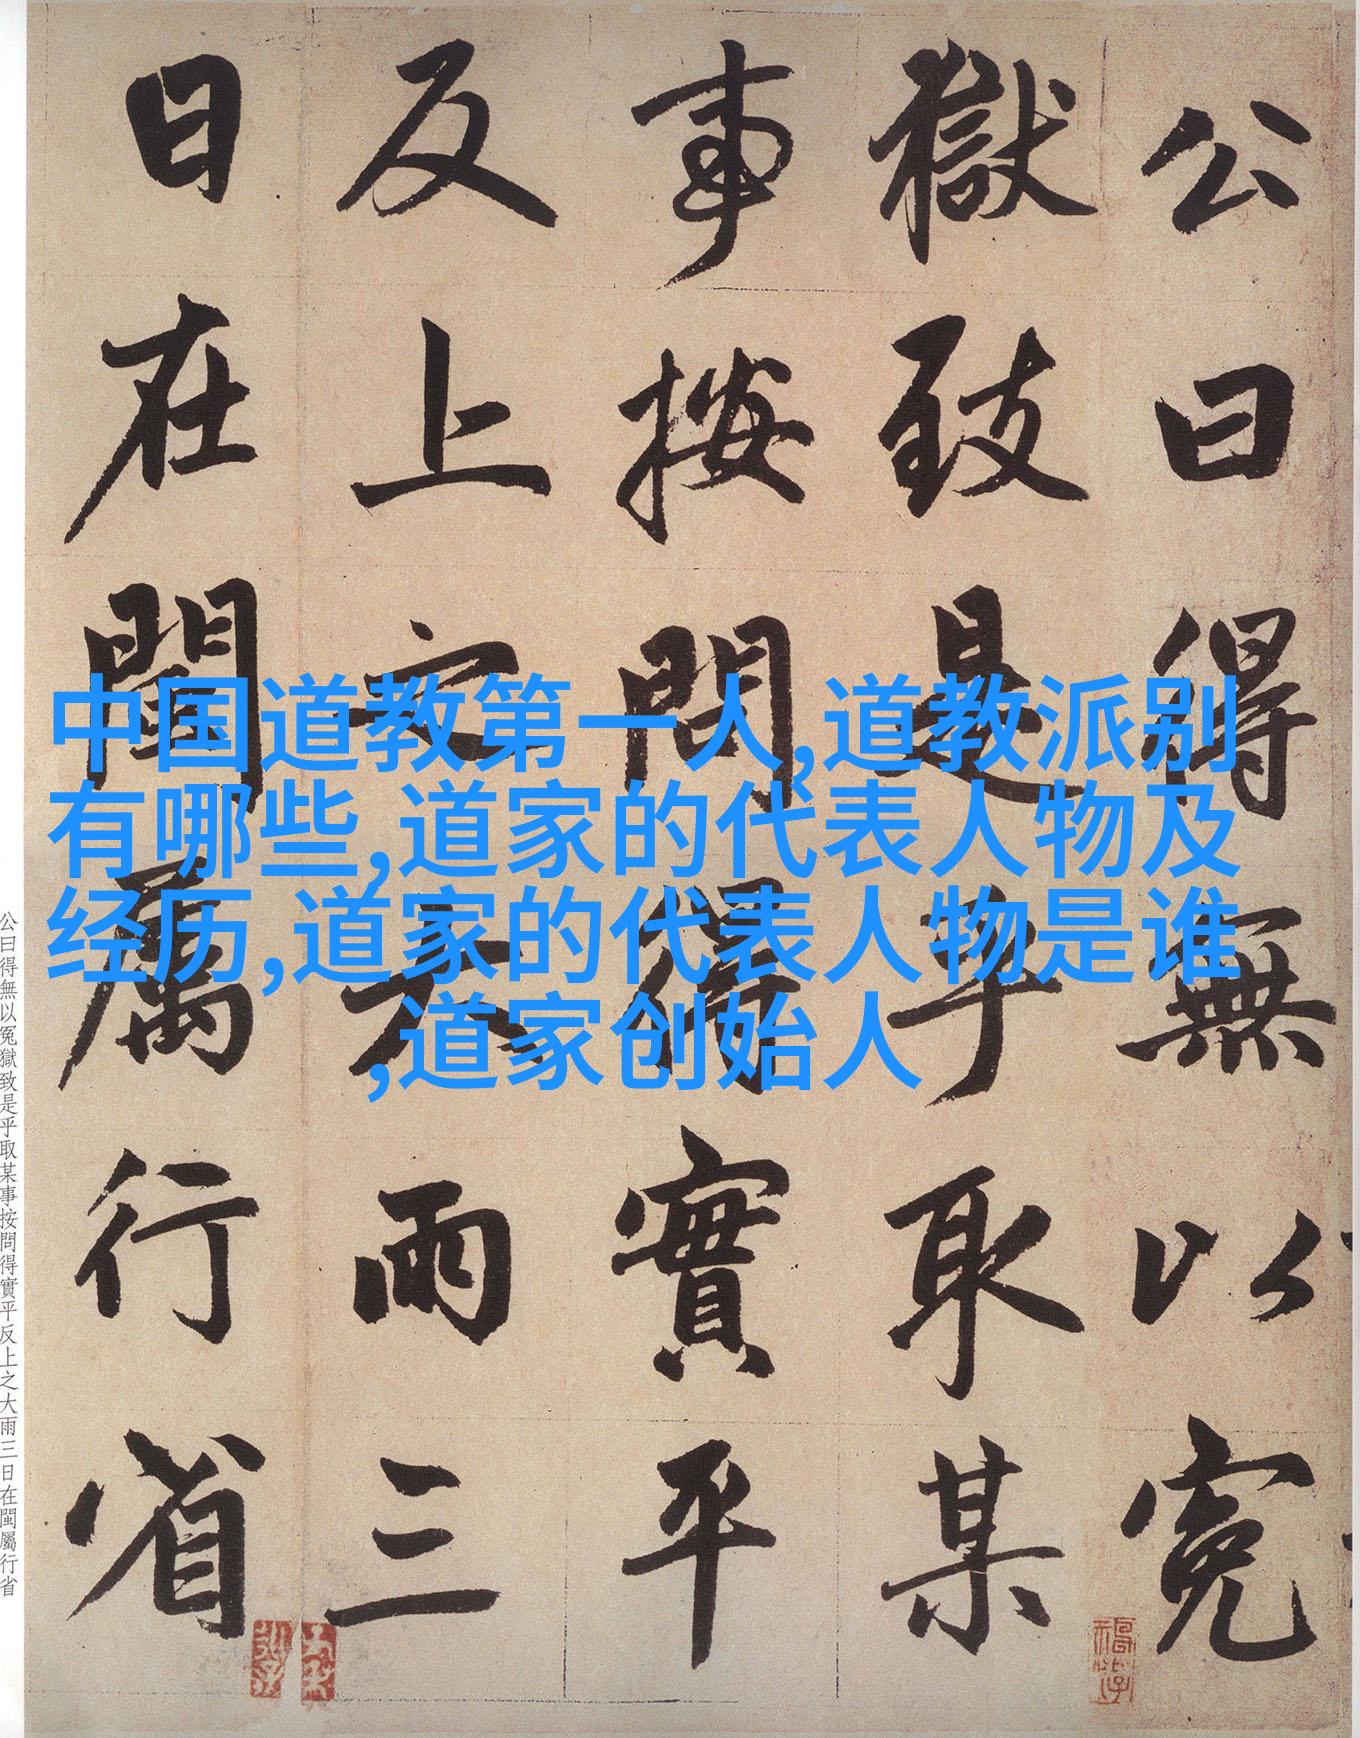 公曰得無以冤
獄致是乎取某
事按問得實平
反上之大雨三
日在閩屬行省
中国道教第一人,道教派别
有哪些,道家的代表人物及
经历,道家的代表人物是谁
,道家创始人
公曰得無以冤獄致是乎取某事按問得實平反上之大雨三日在閩屬行省